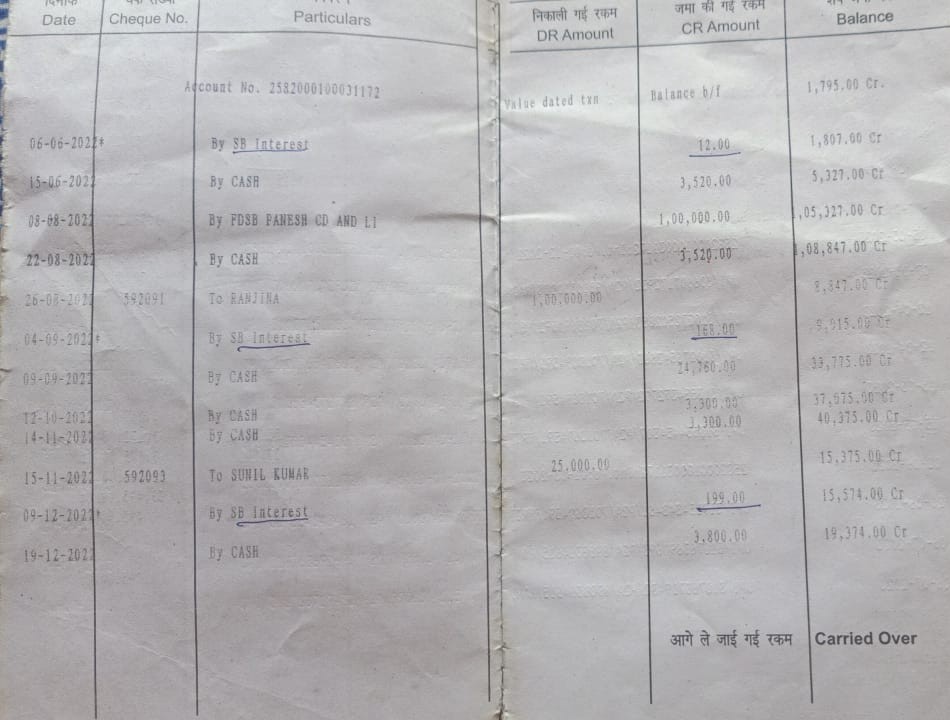 निकाली गई रकम जमा की गई रकम
Date Cheque No. Particulars DR Amount CR Amount Balance
Account No. 2582000100031172 Value dated txn Balance b/f 1,795.00 Cr.
06-06-2022* By SB Interest 12.00 1,807.00 Cr
15-06-2022 By CASH 3,520.00 5,327.00 Cr
08-08-2022 By FDSB PANESH CD AND LI 1,00,000.00 1,05,327.00 Cr
22-08-2022 By CASH 3,520.00 1,08,847.00 Cr
26-08-2022 592091 To RANJINA 1,00,000.00 8,847.00 Cr
04-09-2022* By SB Interest 168.00 9,015.00 Cr
09-09-2022 By CASH 24,760.00 33,775.00 Cr
12-10-2022 By CASH 3,300.00 37,075.00 Cr
14-11-2022 By CASH 3,300.00 40,375.00 Cr
15-11-2022 592093 To SUNIL KUMAR 25,000.00 15,375.00 Cr
09-12-2022* By SB Interest 199.00 15,574.00 Cr
19-12-2022 By CASH 3,800.00 19,374.00 Cr
आगे ले जाई गई रकम Carried Over